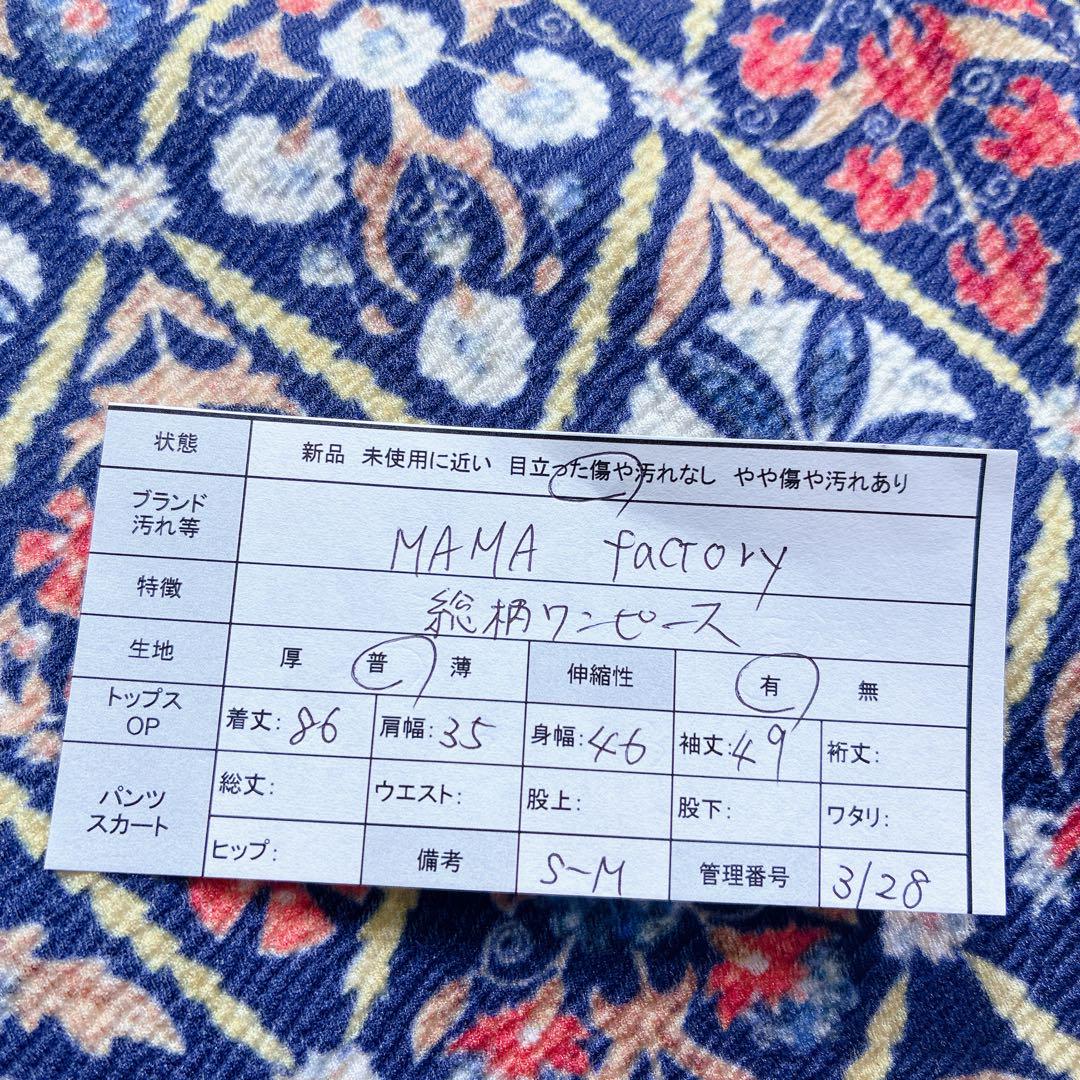 状態 新品 未使用に近い 目立った傷や汚れなし やや傷や汚れあり
ブランド
汚れ等
MAMA factory
特徴 総柄ワンピース
生地 厚 普 薄 伸縮性 有 無
トップス
OP
着丈: 86 肩幅: 35 身幅: 46 袖丈: 49 裄丈:
パンツ
スカート
総丈: ウエスト: 股上: 股下: ワタリ:
ヒップ: 備考 S-M 管理番号 3/28